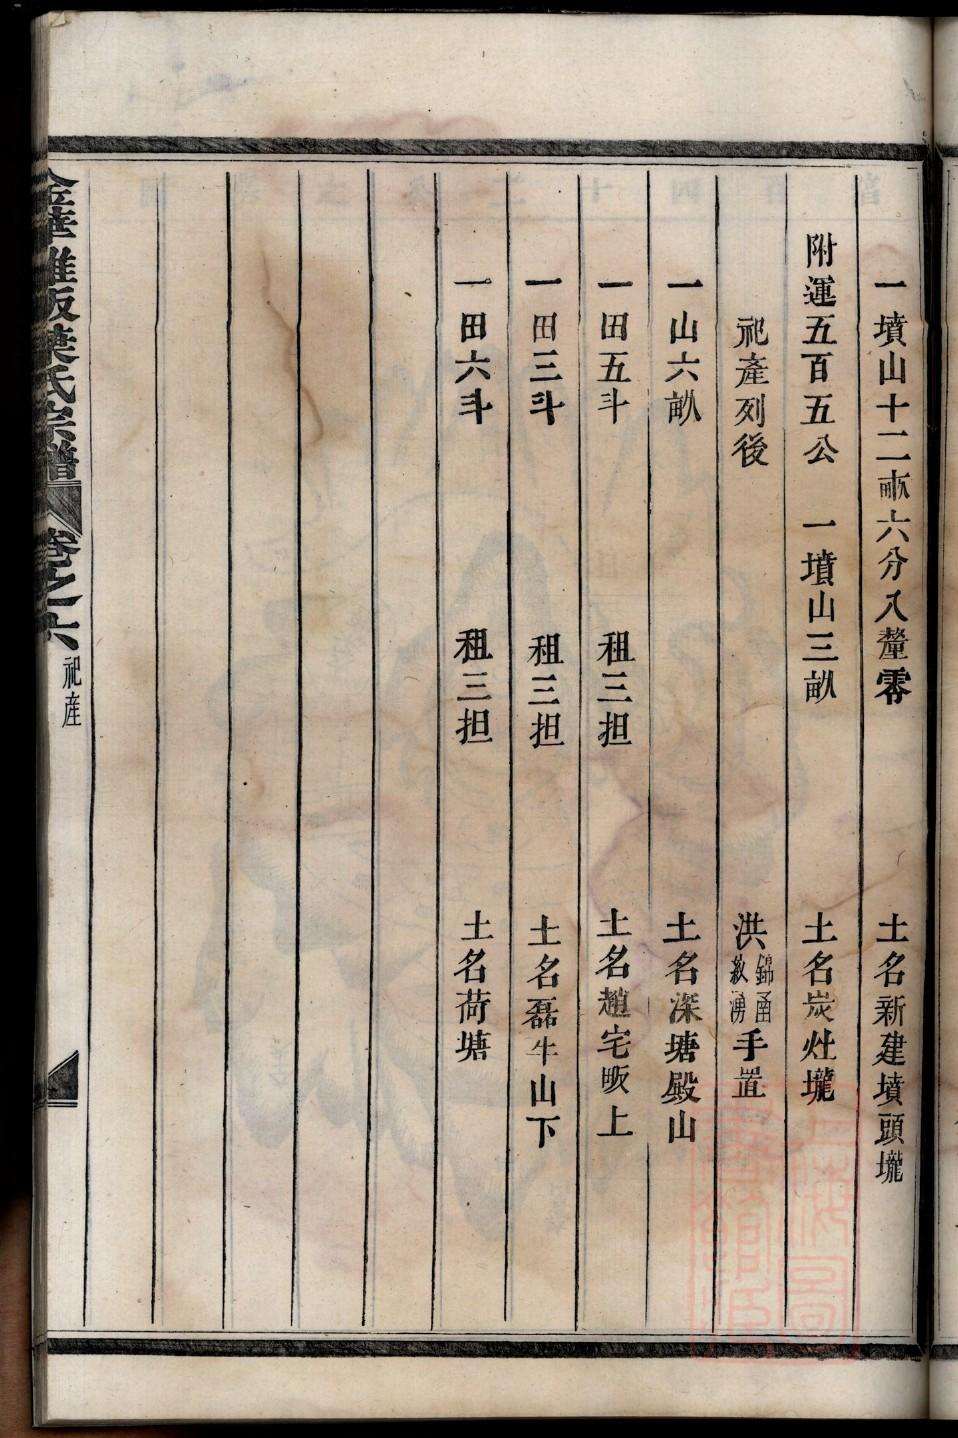 一墳山十二畝六分八釐零 土名新建墳頭壠
附運五百五公 一墳山三畝 土名炭灶壠
祀產列後 洪錦甬敘湧手置
一山六畝 土名深塘殿山
一田五斗 租三担 土名趙宅畈上
一田三斗 租三担 土名磊牛山下
一田六斗 租三担 土名荷塘
金華雅畈葉氏宗譜 卷之六 祀產